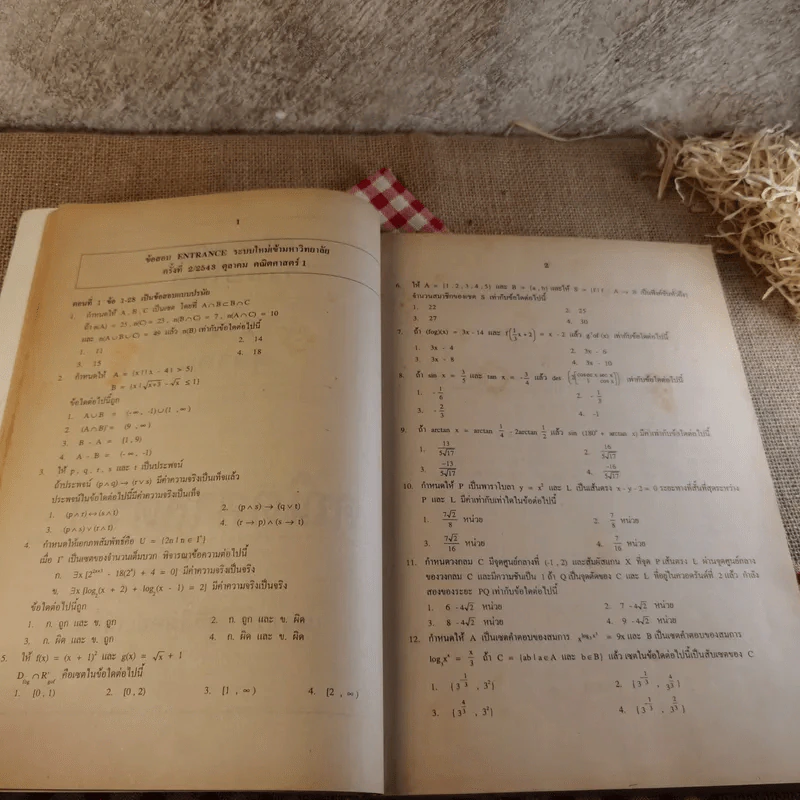 1
ข้อสอบ ENTRANCE ระบบใหม่เข้ามหาวิทยาลัย
ครั้งที่ 2/2543 ตุลาคม คณิตศาสตร์ 1
ตอนที่ 1 ข้อ 1-28 เป็นข้อสอบแบบปรนัย
1. กำหนดให้ A , B , C เป็นเซต โดยที่ A∩B⊂B∩C
ถ้า n(A) = 25 , n(C) = 23 , n(B∩C) = 7 , n(A∩C) = 10
และ n(A∪B∪C) = 49 แล้ว n(B) เท่ากับข้อใดต่อไปนี้
1. 11 2. 14
3. 15 4. 18
2. กำหนดให้ A = {x | |x - 4| > 5}
B = {x | √x+3 - √x ≤ 1}
ข้อใดต่อไปนี้ถูก
1. A∪B = (-∞ , -1)∪(1 , ∞)
2. (A∩B)' = (9 , ∞)
3. B - A = [1 , 9)
4. A - B = (-∞ , -1)
3. ให้ p , q , r , s และ t เป็นประพจน์
ถ้าประพจน์ (p∧q)→(r∨s) มีค่าความจริงเป็นเท็จแล้ว
ประพจน์ในข้อใดต่อไปนี้มีค่าความจริงเป็นเท็จ
1. (p∧r)↔(s∧t) 2. (p∧s) → (q∨t)
3. (p∧s)∨(r∧t) 4. (t → p)∧(s → t)
4. กำหนดให้เอกภพสัมพัทธ์คือ U = {2n | n ∈ I⁺}
เมื่อ I⁺ เป็นเซตของจำนวนเต็มบวก พิจารณาข้อความต่อไปนี้
ก. ∃x [2²ˣ⁺¹ - 18(2ˣ) + 4 = 0] มีค่าความจริงเป็นจริง
ข. ∃x [log₂(x + 2) + log₂(x - 1) = 2] มีค่าความจริงเป็นจริง
ข้อใดต่อไปนี้ถูก
1. ก. ถูก และ ข. ถูก 2. ก. ถูก และ ข. ผิด
3. ก. ผิด และ ข. ถูก 4. ก. ผิด และ ข. ผิด
5. ให้ f(x) = (x + 1)² และ g(x) = √x + 1
คือเซตในข้อใดต่อไปนี้
1. [0 , 1) 2. [0 , 2) 3. [1 , ∞) 4. [2 , ∞)
2
6. ให้ A = {1 , 2 , 3 , 4 , 5} และ B = {a , b} และให้
จำนวนสมาชิกของเซต S เท่ากับข้อใดต่อไปนี้
1. 22 2. 25
3. 27 4. 30
7. ถ้า (fog)(x) = 3x - 14 และ f(1/3 x + 2) = x - 2 แล้ว เท่ากับข้อใดต่อไปนี้
1. 3x - 4 2. 3x - 6
3. 3x - 8 4. 3x - 10
8. ถ้า sin x = 3/5 และ tan x = -3/4 แล้ว det เท่ากับข้อใดต่อไปนี้
1. -1/6 2. -1/3
3. -2/3 4. -1
9. ถ้า arctan x = arctan 1/4 - 2arctan 1/2 แล้ว sin (180° + arctan x) มีค่าเท่ากับข้อใดต่อไปนี้
1. 13/5√17 2. 16/5√17
3. -13/5√17 4. -16/5√17
10. กำหนดให้ P เป็นพาราโบลา y = x² และ L เป็นเส้นตรง x - y - 2 = 0 ระยะทางที่สั้นที่สุดระหว่าง
P และ L มีค่าเท่ากับเท่าใดในข้อใดต่อไปนี้
1. 7√2/8 หน่วย 2. 7/8 หน่วย
3. 7√2/16 หน่วย 4. 7/16 หน่วย
11. กำหนดวงกลม C มีจุดศูนย์กลางที่ (-1 , 2) และสัมผัสแกน X ที่จุด P เส้นตรง L ผ่านจุดศูนย์กลาง
ของวงกลม C และมีความชันเป็น 1 ถ้า Q เป็นจุดตัดของ C และ L ที่อยู่ในควอดรันต์ที่ 2 แล้ว กำลัง
สองของระยะ PQ เท่ากับข้อใดต่อไปนี้
1. 6 - 4√2 หน่วย 2. 7 - 4√2 หน่วย
3. 8 - 4√2 หน่วย 4. 9 - 4√2 หน่วย
12. กำหนดให้ A เป็นเซตคำตอบของสมการ = 9x และ B เป็นเซตคำตอบของสมการ
ถ้า C = {ab | a∈A และ b∈B} แล้ว เซตในข้อใดต่อไปนี้เป็นสับเซตของ C
1. 2.
3. 4.